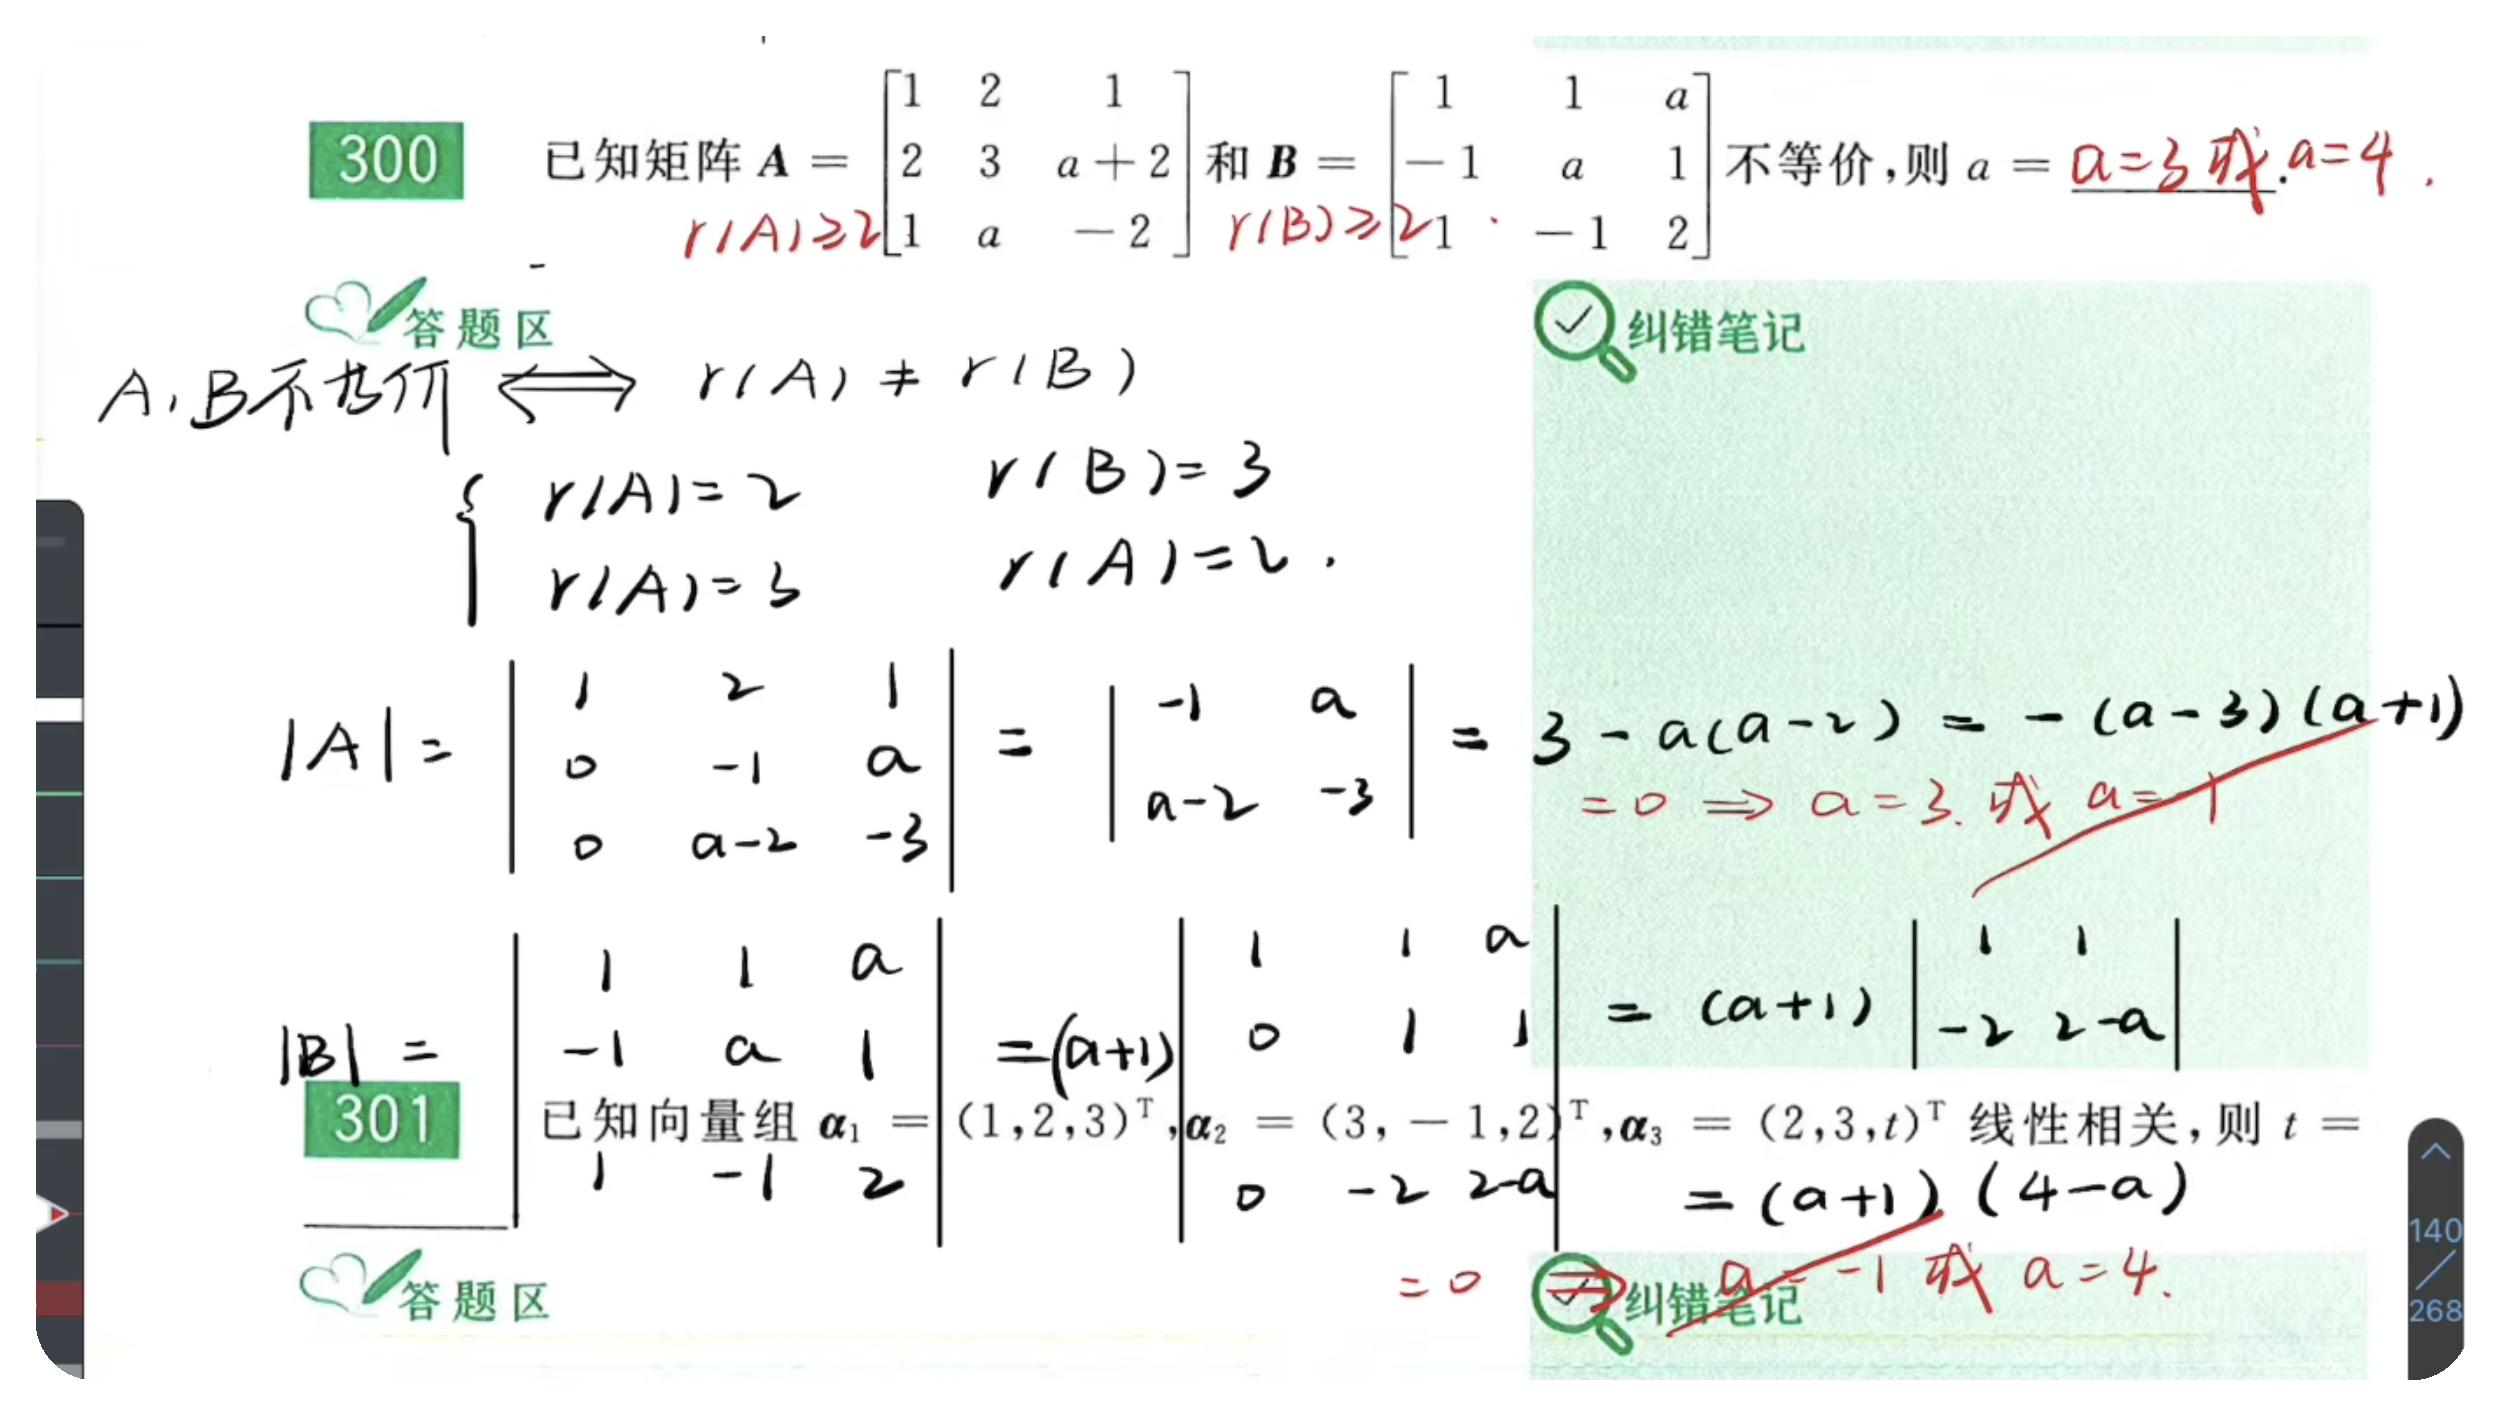 300 已知矩阵 A = [1 2 1; 2 3 a+2; 1 a -2] 和 B = [1 1 a; -1 a 1; 1 -1 2] 不等价,则 a = a=3 或 a=4.
r(A)≥2 r(B)≥2
答题区 纠错笔记
A,B不等价 ⟺ r(A) ≠ r(B)
{ r(A)=2 r(B)=3
r(A)=3 r(A)=2.
|A| = |1 2 1; 0 -1 a; 0 a-2 -3| = |-1 a; a-2 -3| = 3-a(a-2) = -(a-3)(a+1)
=0 ⇒ a=3. 或 a=-1
|B| = |1 1 a; -1 a 1; 1 -1 2| = (a+1) |1 1 a; 0 1 1; 0 -2 2-a| = (a+1) |1 1; -2 2-a|
301 已知向量组 α₁ = (1,2,3)ᵀ,α₂ = (3,-1,2)ᵀ,α₃ = (2,3,t)ᵀ 线性相关,则 t =
= (a+1)(4-a)
=0 ⇒ a=-1 或 a=4.
答题区 纠错笔记
140
/
268